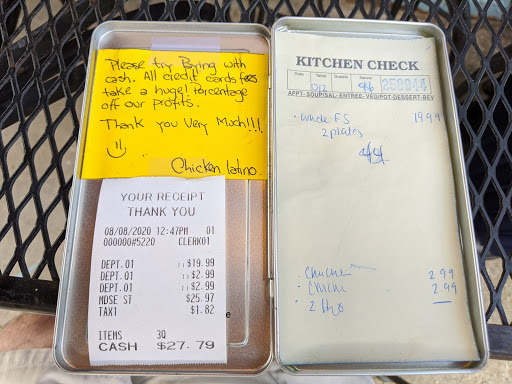 Please try Paying with
cash. All credit cards fees
take a huge! Percentage
off our profits.
Thank you Very Much!!!
Chicken latino.
YOUR RECEIPT
THANK YOU
08/08/2020 12:47PM 01
000000#5220 CLERK01
DEPT.01 $19.99
DEPT.01 $2.99
DEPT.01 $2.99
MDSE ST $25.97
TAX1 $1.82
ITEMS 3Q
CASH $27.79
KITCHEN CHECK
Date Table Guests Server
258944
APPT-SOUP/SAL-ENTREE-VEG/POT-DESSERT-BEV
whole F.S 1999
2 plates
chicha 299
chicha 299
2 H2O